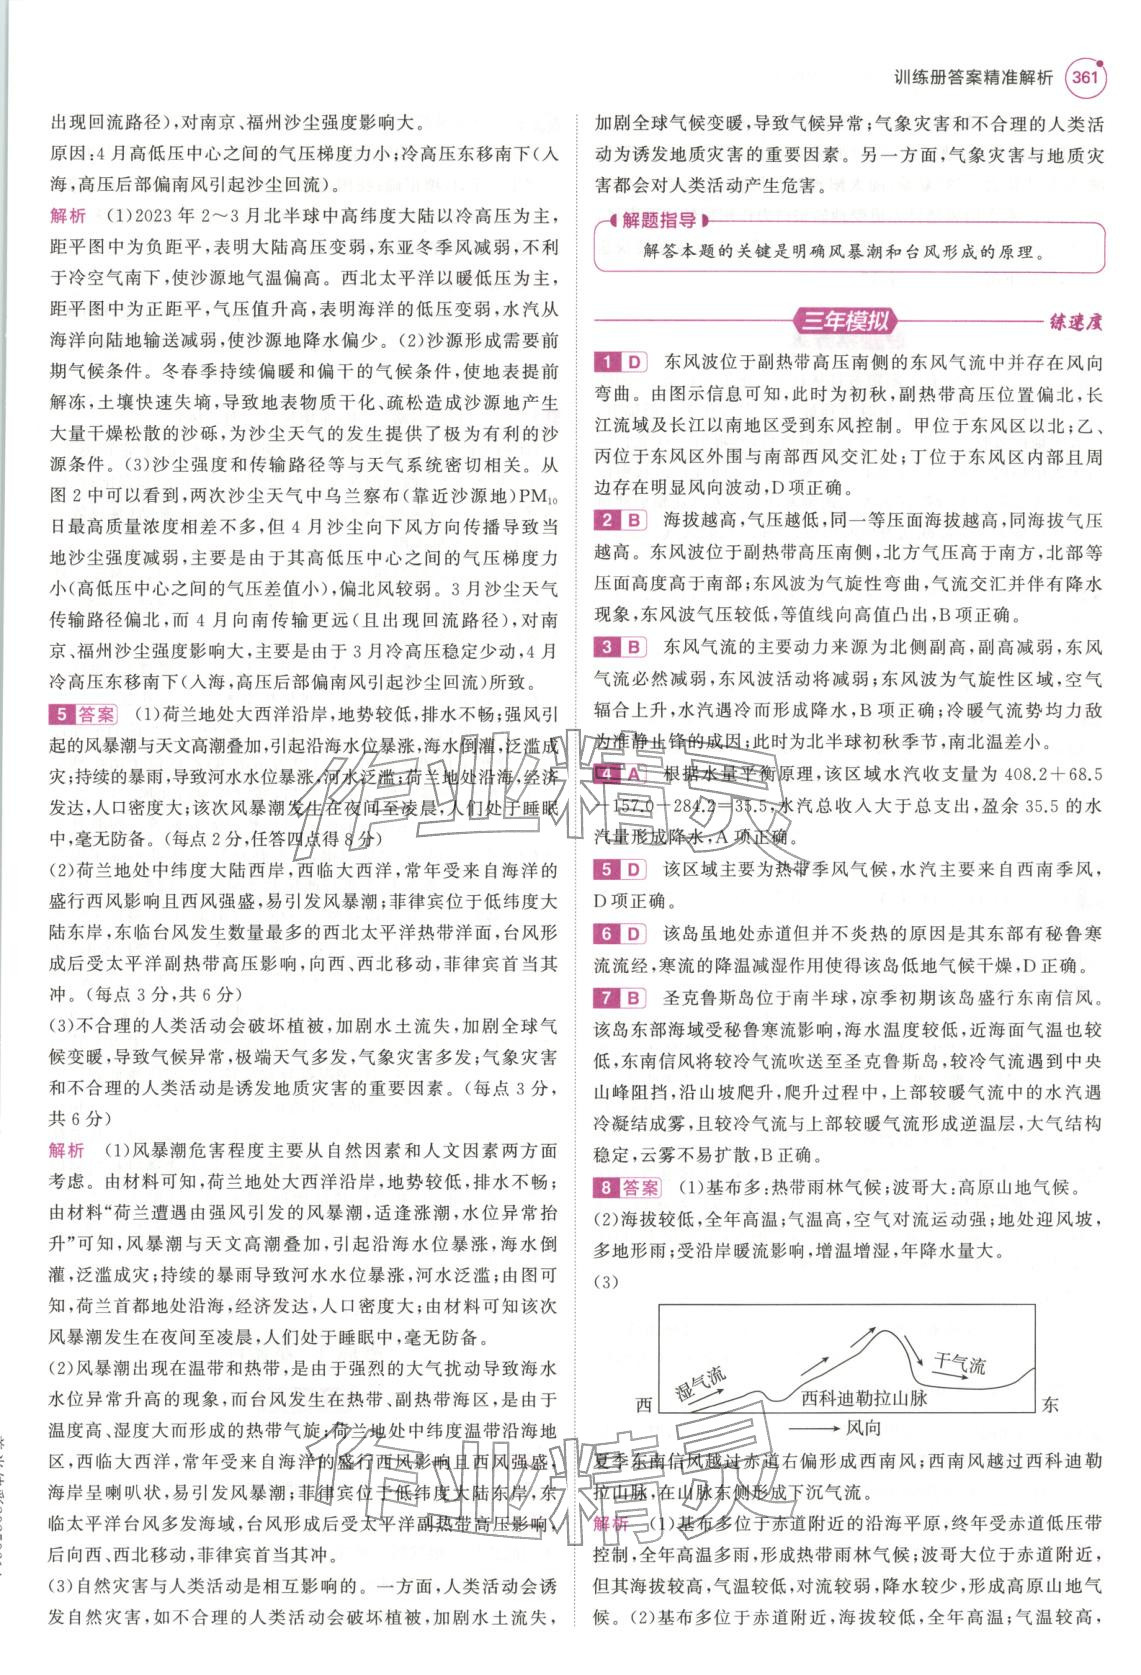 训练册答案精准解析 361
出现回流路径),对南京、福州沙尘强度影响大。
原因:4月高低压中心之间的气压梯度力小;冷高压东移南下(入
海,高压后部偏南风引起沙尘回流)。
解析 (1)2023年2~3月北半球中高纬度大陆以冷高压为主,
距平图中为负距平,表明大陆高压变弱,东亚冬季风减弱,不利
于冷空气南下,使沙源地气温偏高。西北太平洋以暖低压为主,
距平图中为正距平,气压值升高,表明海洋的低压变弱,水汽从
海洋向陆地输送减弱,使沙源地降水偏少。(2)沙源形成需要前
期气候条件。冬春季持续偏暖和偏干的气候条件,使地表提前
解冻,土壤快速失墒,导致地表物质干化、疏松造成沙源地产生
大量干燥松散的沙砾,为沙尘天气的发生提供了极为有利的沙
源条件。(3)沙尘强度和传输路径等与天气系统密切相关。从
图2中可以看到,两次沙尘天气中乌兰察布(靠近沙源地)PM₁₀
日最高质量浓度相差不多,但4月沙尘向下风方向传播导致当
地沙尘强度减弱,主要是由于其高低压中心之间的气压梯度力
小(高低压中心之间的气压差值小),偏北风较弱。3月沙尘天气
传输路径偏北,而4月向南传输更远(且出现回流路径),对南
京、福州沙尘强度影响大,主要是由于3月冷高压稳定少动,4月
冷高压东移南下(入海,高压后部偏南风引起沙尘回流)所致。
5 答案 (1)荷兰地处大西洋沿岸,地势较低,排水不畅;强风引
起的风暴潮与天文高潮叠加,引起沿海水位暴涨,海水倒灌,泛滥成
灾;持续的暴雨,导致河水水位暴涨,河水泛滥;荷兰地处沿海,经济
发达,人口密度大;该次风暴潮发生在夜间至凌晨,人们处于睡眠
中,毫无防备。(每点2分,任答四点得8分)
(2)荷兰地处中纬度大陆西岸,西临大西洋,常年受来自海洋的
盛行西风影响且西风强盛,易引发风暴潮;菲律宾位于低纬度大
陆东岸,东临台风发生数量最多的西北太平洋热带洋面,台风形
成后受太平洋副热带高压影响,向西、西北移动,菲律宾首当其
冲。(每点3分,共6分)
(3)不合理的人类活动会破坏植被,加剧水土流失,加剧全球气
候变暖,导致气候异常,极端天气多发,气象灾害多发;气象灾害
和不合理的人类活动是诱发地质灾害的重要因素。(每点3分,
共6分)
解析 (1)风暴潮危害程度主要从自然因素和人文因素两方面
考虑。由材料可知,荷兰地处大西洋沿岸,地势较低,排水不畅;
由材料“荷兰遭遇由强风引发的风暴潮,适逢涨潮,水位异常抬
升”可知,风暴潮与天文高潮叠加,引起沿海水位暴涨,海水倒
灌,泛滥成灾;持续的暴雨导致河水水位暴涨,河水泛滥;由图可
知,荷兰首都地处沿海,经济发达,人口密度大;由材料可知该次
风暴潮发生在夜间至凌晨,人们处于睡眠中,毫无防备。
(2)风暴潮出现在温带和热带,是由于强烈的大气扰动导致海水
水位异常升高的现象,而台风发生在热带、副热带海区,是由于
温度高、湿度大而形成的热带气旋;荷兰地处中纬度温带沿海地
区,西临大西洋,常年受来自海洋的盛行西风影响且西风强盛,
海岸呈喇叭状,易引发风暴潮;菲律宾位于低纬度大陆东岸,东
临太平洋台风多发海域,台风形成后受太平洋副热带高压影响,
后向西、西北移动,菲律宾首当其冲。
(3)自然灾害与人类活动是相互影响的。一方面,人类活动会诱
发自然灾害,如不合理的人类活动会破坏植被,加剧水土流失,
加剧全球气候变暖,导致气候异常;气象灾害和不合理的人类活
动为诱发地质灾害的重要因素。另一方面,气象灾害与地质灾
害都会对人类活动产生危害。
解题指导
解答本题的关键是明确风暴潮和台风形成的原理。
三年模拟 练速度
1 D 东风波位于副热带高压南侧的东风气流中并存在风向
弯曲。由图示信息可知,此时为初秋,副热带高压位置偏北,长
江流域及长江以南地区受到东风控制。甲位于东风区以北;乙、
丙位于东风区外围与南部西风交汇处;丁位于东风区内部且周
边存在明显风向波动,D项正确。
2 B 海拔越高,气压越低,同一等压面海拔越高,同海拔气压
越高。东风波位于副热带高压南侧,北方气压高于南方,北部等
压面高度高于南部;东风波为气旋性弯曲,气流交汇并伴有降水
现象,东风波气压较低,等值线向高值凸出,B项正确。
3 B 东风气流的主要动力来源为北侧副高,副高减弱,东风
气流必然减弱,东风波活动将减弱;东风波为气旋性区域,空气
辐合上升,水汽遇冷而形成降水,B项正确;冷暖气流势均力敌
为准静止锋的成因;此时为北半球初秋季节,南北温差小。
4 A 根据水量平衡原理,该区域水汽收支量为408.2+68.5
-157.0-284.2=35.5;水汽总收入大于总支出,盈余35.5的水
汽量形成降水,A项正确。
5 D 该区域主要为热带季风气候,水汽主要来自西南季风,
D项正确。
6 D 该岛虽地处赤道但并不炎热的原因是其东部有秘鲁寒
流流经,寒流的降温减湿作用使得该岛低地气候干燥,D正确。
7 B 圣克鲁斯岛位于南半球,凉季初期该岛盛行东南信风。
该岛东部海域受秘鲁寒流影响,海水温度较低,近海面气温也较
低,东南信风将较冷气流吹送至圣克鲁斯岛,较冷气流遇到中央
山峰阻挡,沿山坡爬升,爬升过程中,上部较暖气流中的水汽遇
冷凝结成雾,且较冷气流与上部较暖气流形成逆温层,大气结构
稳定,云雾不易扩散,B正确。
8 答案 (1)基布多:热带雨林气候;波哥大:高原山地气候。
(2)海拔较低,全年高温;气温高,空气对流运动强;地处迎风坡,
多地形雨;受沿岸暖流影响,增温增湿,年降水量大。
(3)
湿气流
干气流
西科迪勒拉山脉
西
东
风向
夏季东南信风越过赤道右偏形成西南风;西南风越过西科迪勒
拉山脉,在山脉东侧形成下沉气流。
解析 (1)基布多位于赤道附近的沿海平原,终年受赤道低压带
控制,全年高温多雨,形成热带雨林气候;波哥大位于赤道附近,
但其海拔较高,气温较低,对流较弱,降水较少,形成高原山地气
候。(2)基布多位于赤道附近,海拔较低,全年高温;气温较高,
作业精灵
作业精灵